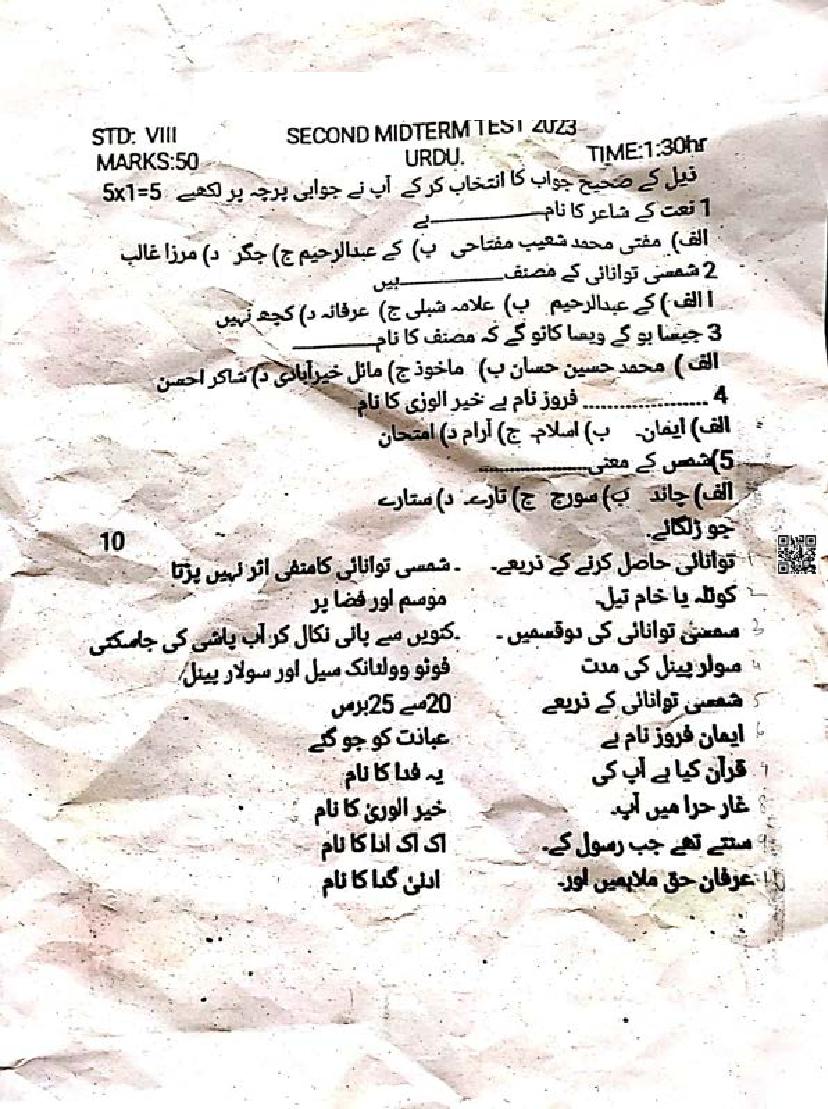 STD: VIII SECOND MIDTERM TEST 2023
MARKS:50 URDU. TIME:1:30hr
ذیل کے صحیح جواب کا انتخاب کر کے آپ نے جوابی پرچہ پر لکھیے 5x1=5
1 نعت کے شاعر کا نام__________ہے
الف) مفتی محمد شعیب مفتاحی ب) کے عبدالرحیم ج) جگر د) مرزا غالب
2 شمسی توانائی کے مصنف__________ہیں
ا الف) کے عبدالرحیم ب) علامہ شبلی ج) عرفانہ د) کچھ نہیں
3 جیسا بو گے ویسا کاٹو گے کہ مصنف کا نام__________
الف) محمد حسین حسان ب) ماخوذ ج) مائل خیرآبادی د) شاکر احسن
4 .................... فروز نام ہے خیر الوزی کا نام
الف) ایمان۔ ب) اسلام۔ ج) آرام د) امتحان
5) شمس کے معنی....................
الف) چاند ب) سورج ج) تارے۔ د) ستارے
جو ڑلگائے۔ 10
توانائی حاصل کرنے کے ذریعے۔ ۔ شمسی توانائی کامنفی اثر نہیں پڑتا
کوئلہ یا خام تیل۔ موسم اور فضا پر
سمسنی توانائی کی دوقسمیں ۔ ۔کنویں سے پانی نکال کر آب پاشی کی جاسکتی
سولر پینل کی مدت فوٹو وولٹائک سیل اور سولار پینل
شمسی توانائی کے ذریعے 20سے 25برس
ایمان فروز نام ہے عبانت کو جو گئے
قرآن کیا ہے آپ کی یہ فدا کا نام
غار حرا میں آپ۔ خیر الوریٰ کا نام
سنتے تھے جب رسول کے۔ اک اک ادا کا نام
عرفان حق ملاہمیں اور۔ ادنیٰ گدا کا نام